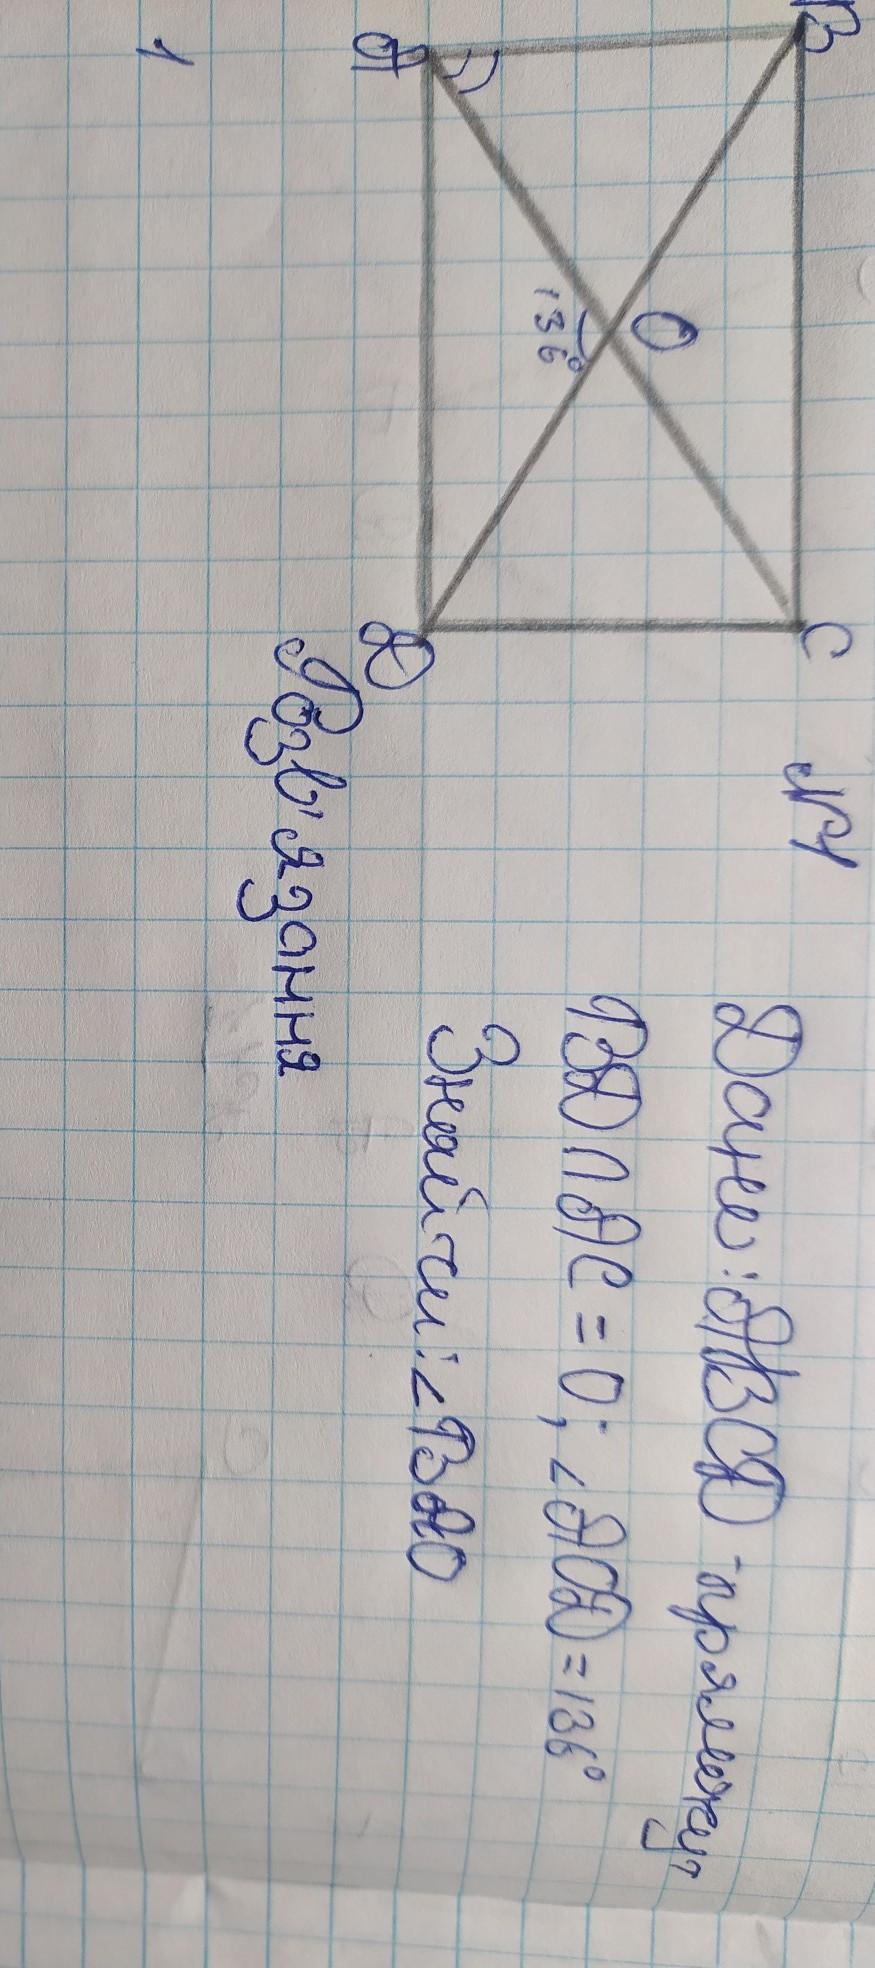 B
C
№1
O
136°
A
D
Дано: ABCD - прямокут
BD ∩ AC = O; ∠AOD = 136°
Знайти: ∠BAO
Розв'язання
1